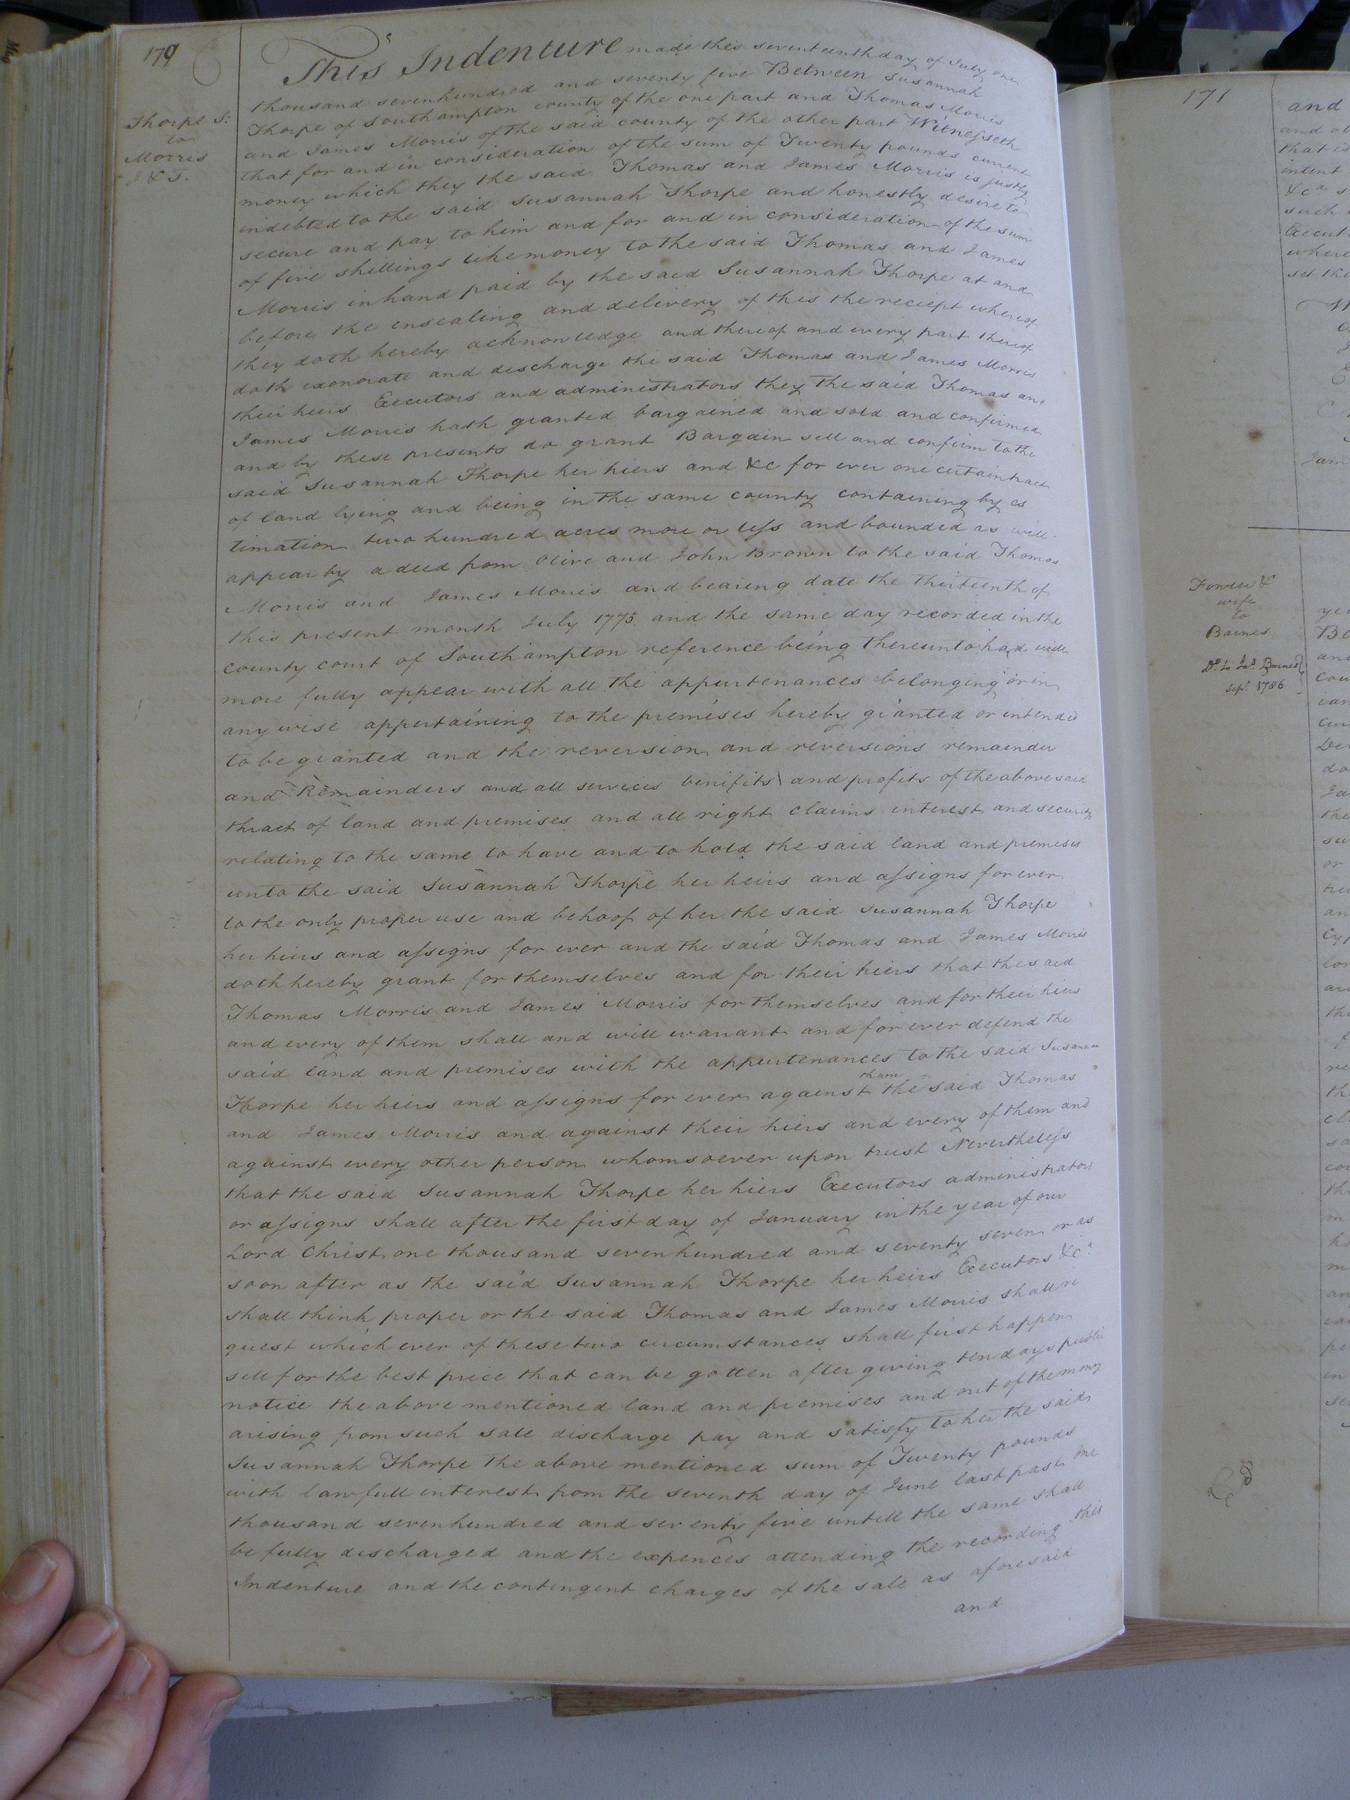 179
Thorpe S:
to
Morris
J & T.
This Indenture made this seventeenth day of July one
thousand sevenhundred and seventy five Between Susannah
Thorpe of Southampton county of the one part and Thomas Morris
and James Morris of the said county of the other part Witnesseth
that for and in consideration of the sum of Twenty pounds current
money which they the said Thomas and James Morris is justly
indebted to the said Susannah Thorpe and honestly desire to
secure and pay to him and for and in consideration of the sum
of five shillings like money to the said Thomas and James
Morris in hand paid by the said Susannah Thorpe at and
before the ensealing and delivery of this the reciept whereof
they doth hereby acknowledge and thereof and every part thereof
doth exonorate and discharge the said Thomas and James Morris
their heirs Executors and administrators they the said Thomas and
James Morris hath granted bargained and sold and confirmed
and by these presents do grant Bargain sell and confirm to the
said Susannah Thorpe her hiers and &c for ever one certain tract
of land lying and being in the same county containing by es
timation two hundred acres more or less and bounded as will
appear by a deed from Olive and John Brown to the said Thomas
Morris and James Morris and bearing date the thirteenth of
this present month July 1775 and the same day recorded in the
county court of Southampton reference being thereunto had will
more fully appear with all the appurtenances belonging or in
any wise appertaining to the premises hereby granted or intended
to be granted and the reversion and reversions remainder
and Remainders and all services benifits and profits of the above said
thract of land and premises and all right claims interest and security
relating to the same to have and to hold the said land and premises
unto the said Susannah Thorpe her heirs and assigns for ever
to the only proper use and behoof of her the said Susannah Thorpe
her hiers and assigns for ever and the said Thomas and James Morris
doth hereby grant for themselves and for their hiers that the said
Thomas Morris and James Morris for themselves and for their hiers
and every of them shall and will warrant and for ever defend the
said land and premises with the appurtenances to the said Susanna
Thorpe her hiers and assigns for ever against them the said Thomas
and James Morris and against their hiers and every of them and
against every other person whomsoever upon trust Nevertheless
that the said Susannah Thorpe her hiers Executors administrators
or assigns shall after the first day of January in the year of our
Lord Christ one thousand sevenhundred and seventy seven or as
soon after as the said Susannah Thorpe her heirs Executors &c
shall think proper or the said Thomas and James Morris shall re
quest which ever of these two circumstances shall first happen
sell for the best price that can be gotten after giving ten days public
notice the above mentioned land and premises and out of the money
arising from such sale discharge pay and satisfy to her the said
Susannah Thorpe the above mentioned sum of Twenty pounds
with lawfull interest from the seventh day of June last past one
thousand sevenhundred and seventy five untill the same shall
be fully discharged and the expences attending the recording this
Indenture and the contingent charges of the sale as aforesaid
and
171
and
that is
intent
&c
such
Execut
where
set the
Jam
Fowler &
wife
to
Barnes
Dd. to Jas. Barnes
Sept. 1786